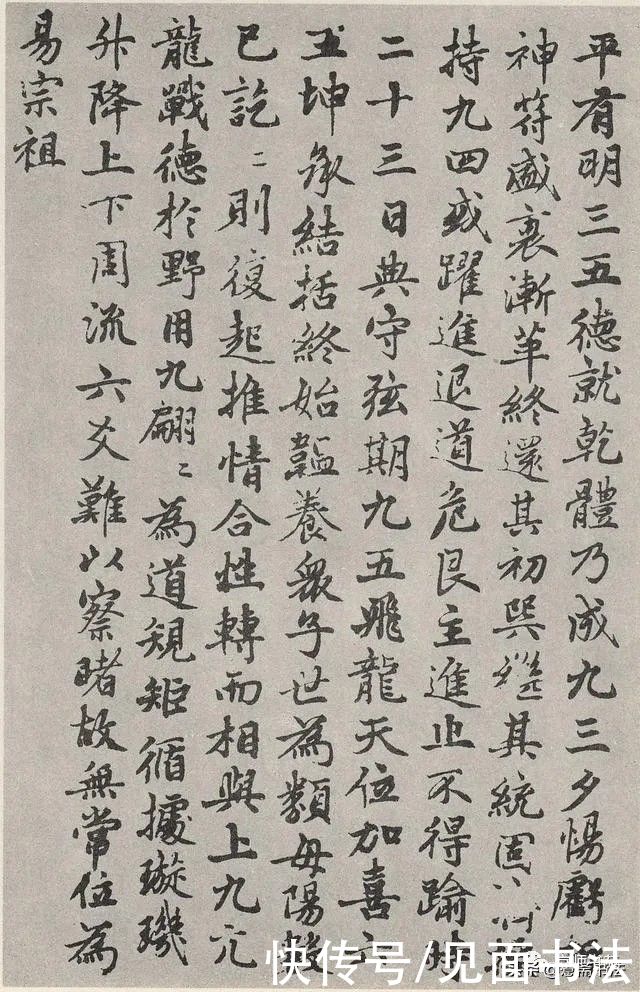 平有明三五德就乾體乃成九三夕惕虧
神符盛衰漸革終還其初巽繼其統固濟
持九四或躍進退道危艮主進止不得踰時
二十三日典守弦期九五飛龍天位加喜六
五坤承結括終始韞養衆子世為類母陽數
已訖〻則復起推情合性轉而相與上九亢
龍戰德於野用九翩〻為道規矩循據璇璣
升降上下周流六爻難以察睹故無常位為
易宗祖
快传号/见面书法